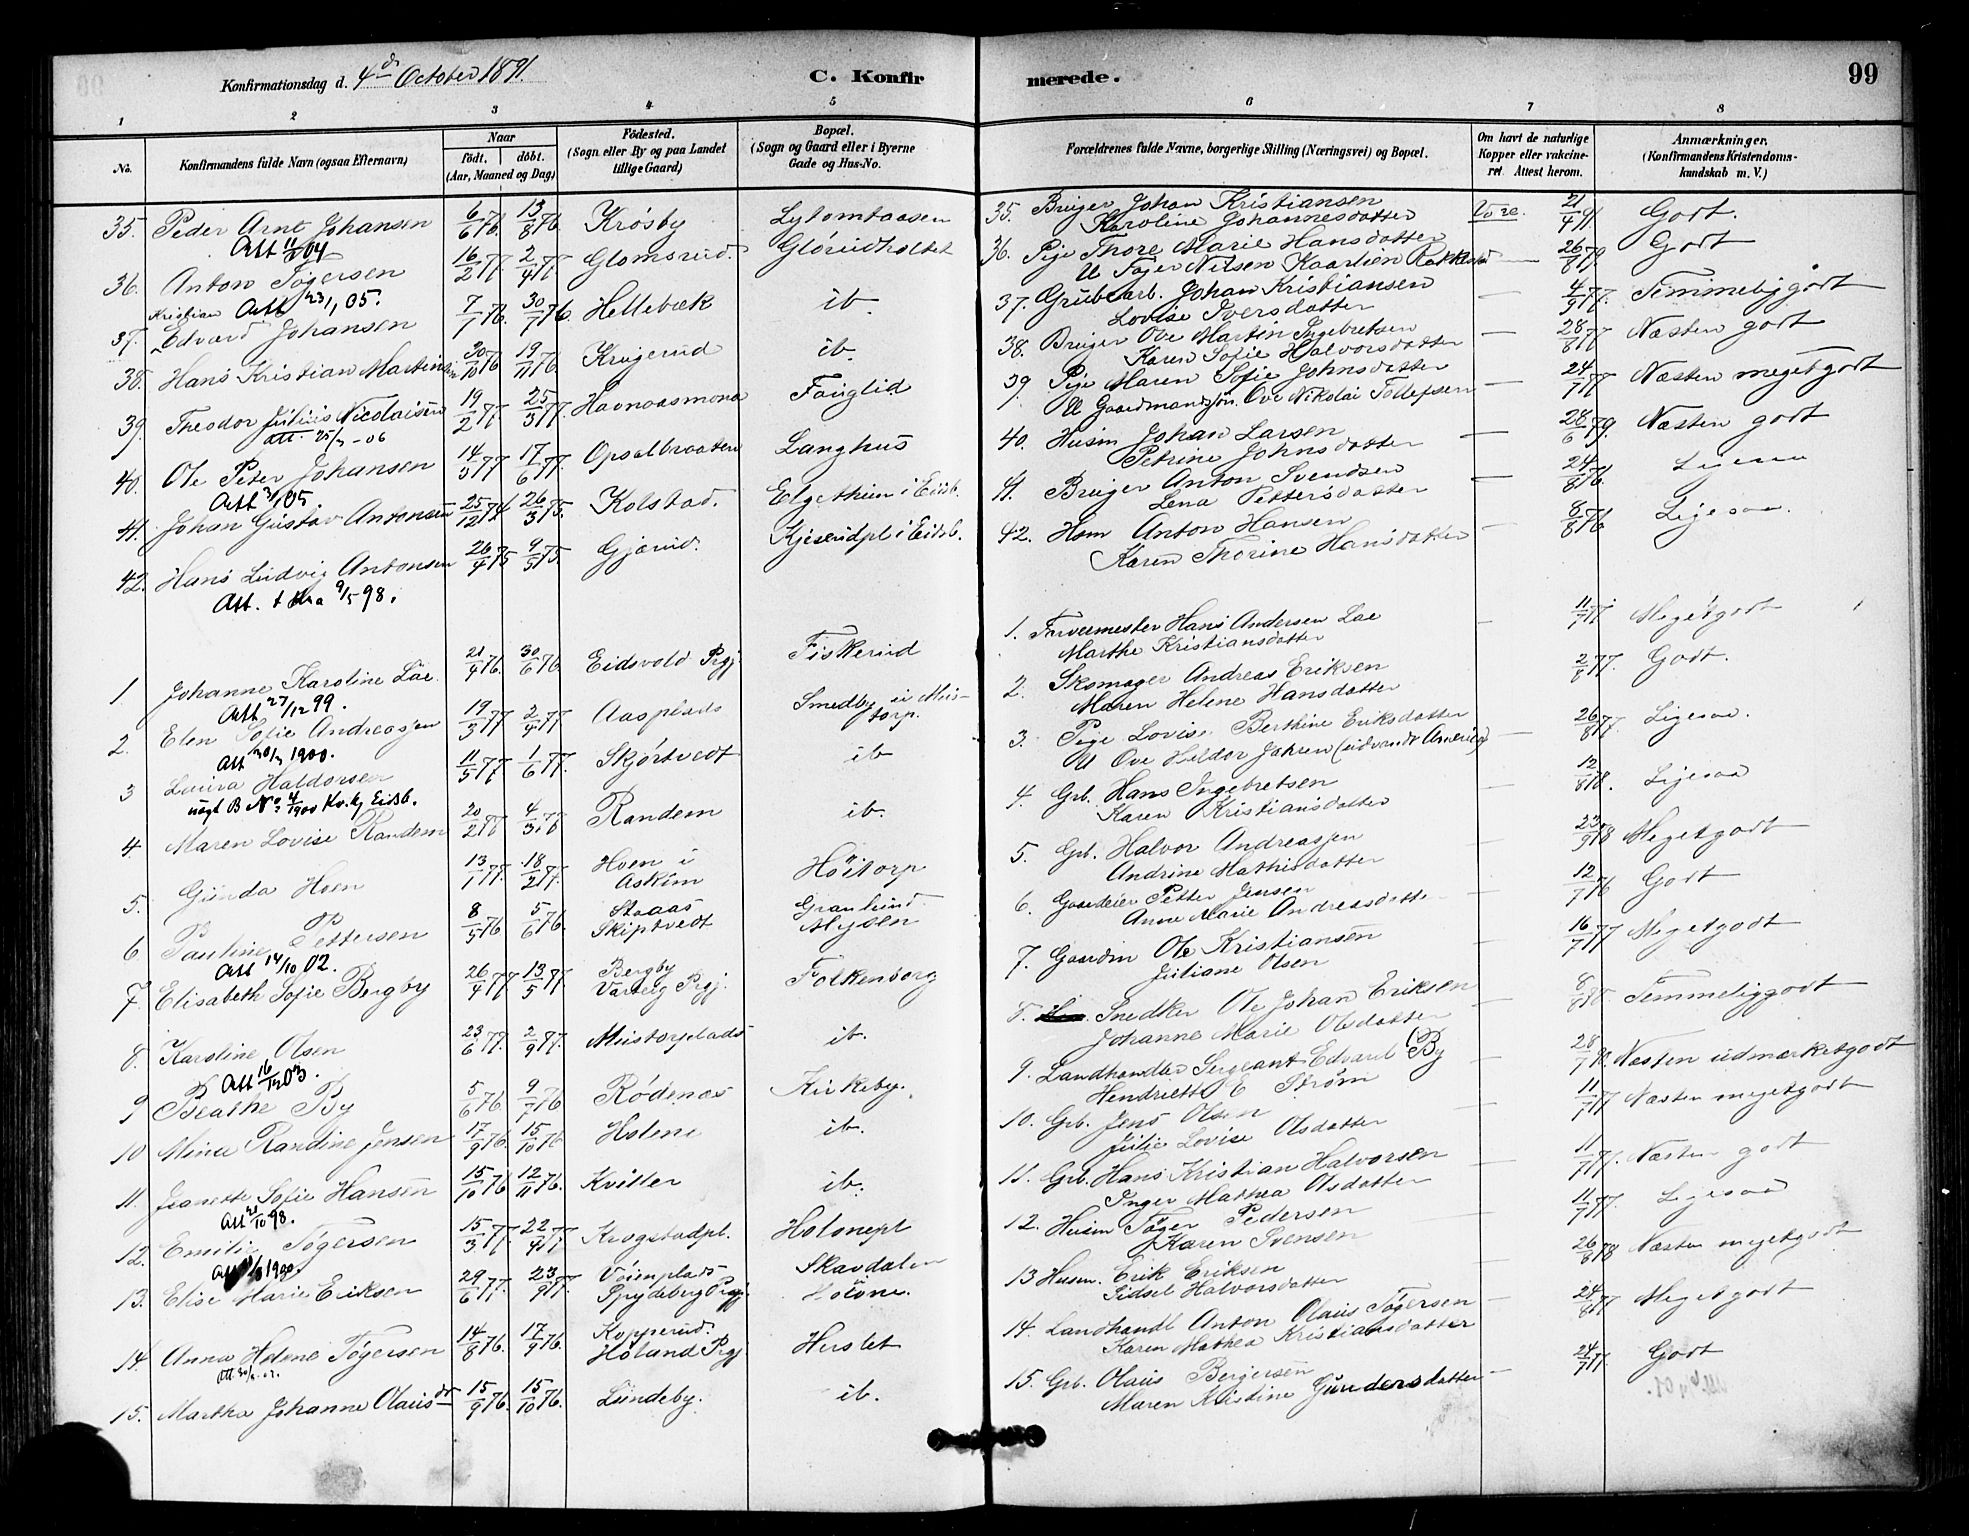 Konfirmationsdag d. 4de October 1891.
C. Konfirmerede.
99
1 2 3 4 5 6 7 8
No.
Konfirmandens fulde Navn (ogsaa Efternavn)
Naar
födt. döbt.
(Aar, Maaned og Dag)
Födested.
(Sogn eller By og paa Landet
tillige Gaard)
Bopæl.
(Sogn og Gaard eller i Byerne
Gade og Hus-No.
Forældrenes fulde Navne, borgerlige Stilling (Næringsvei) og Bopæl.
Om havt de naturlige
Kopper eller vakcine-
ret Attest herom.
Anmærkninger.
(Konfirmandens Kristendoms-
kundskab m. V.)
35. Peder Arnt Johansen 6/6 76. 13/8 76. Krosby
35. Bruger Johan Kristiansen 21/4 91 Godt.
Karoline Johannesdatter
36. Anton Tøgersen 16/2 77 2/4 77 Glomsrud. Glórudholtet
36. Pige Thore Marie Hansdatter 26/8 79 Godt
U Tøger Nilsen
37. Kristian Edvard Johansen 7/7 76. 30/7 76. Hellebæk ib.
Att 23/1 05.
37. Grubearb. Johan Kristiansen 4/9 77. Temmeligodt
Lovise Iversdatter
38. Hans Kristian Martinsen 20/10 76 19/11 76 Krugerud ib.
38. Bruger Ove Martin Ingebretsen 28/8 77 Næsten godt
Karen Sofie Halvorsdatter
39. Theodor Julius Nicolaisen 19/2 77 25/3 77. Havnaasmona Fauglid
39. Pige Maren Sofie Johnsdatter 24/7 77 Næsten megetgodt
U Gaardmandssøn Ove Nikolai Tollefsen
40. Ole Peter Johansen 14/5 77 17/6 77. Opsalbraaten Langhus
40. Husm Johan Larsen 28/6 79. Næsten godt
Petrine Johnsdatter
41. Johan Gustav Antonsen 25/12 74 26/3 75. Kolstad.
41. Bruger Anton Svendsen 24/8 76 Ligesaa
Lena Pettersdatter
42. Hans Ludvig Antonsen 26/4 75 9/5 75. Gjørud. Kjiserudpl i Eidsb.
Att. t Kra 9/5 98.
42. Hsm Anton Hansen 8/8 76 Ligesaa.
Karen Thorine Hansdatter
1 Johanne Karoline Lae 21/4 76. 30/6 76 Eidsvold Prgj. Fiskerud
Att 27/12 99.
1. Farvermester Hans Andersen Lae 11/7 77 Megetgodt
Marthe Kristiansdatter
2. Elen Sofie Andreasen 19/3 77 2/4 77 Aasplads
1900.
2. Skomager Andreas Eriksen 2/8 77. Godt.
Maren Helene Hansdatter
3 Luisa Haldorsen 11/5 77 1/6 77. Skjörtvedt ib
3. Pige Lovise Berthine Eriksdatter 26/8 77 Ligesaa.
U Ove Heldor Jahren (udvandr America)
4. Maren Lovise Randem 20/2 76 4/3 76 Randem ib.
4. Grb. Hans Ingebretsen 12/8 78. Ligesaa
Karen Kristiansdatter
5. Gunda Hoen 13/1 77. 18/2 77. Hoen i Askim Höitorp
5. Grb. Halvor Andreassen 23/9 78 Megetgodt
Andrine Mathisdatter
6 Pauline Pettersen 8/5 76 5/6 76. Staaas Skiptvedt Granlund Mysen
Att 14/10 02.
6. Gaardeier Petter Jensen 12/7 76 Godt
Anne Marie Andreasdatter
7. Elisabeth Sofie Bergby 26/4 77 13/5 77. Bergby Varteig Prgj. Folkenborg
7. Gaardm Ole Kristiansen 16/7 77 Megetgodt
Juliane Olsen
8. Karoline Olsen 23/6 77. 2/9 77. Mustorpplads ib.
8. Snedker Ole Johan Eriksen Temmeliggodt
Johanne Marie Olsdatter
9 Beathe By 5/6 76. 9/7 76 Rödenæs Kirkeby.
9. Landhandler Sergeant Edvard By Næsten udmærketgodt
Henriette E Strøm
10 Mina Randine Jensen 17/9 76. 15/10 76 Holene ib.
10. Grb. Jens Olsen 11/7 77 Næsten megetgodt
Julie Lovise Olsdatter
11. Jeanette Sofie Hansen 15/10 76 12/11 76. Kvitler ib.
11. Grb. Hans Kristian Halvorsen 11/7 77. Næsten godt
Inger Mathea Olsdatter
12. Emilie Tøgersen 15/3 77. 22/4 77 Krogstadpl. Holonept
12. Husm Tøger Pedersen 11/7 77 Ligesaa
Karen Svensen
13. Elise Marie Eriksen 29/6 77. 23/9 77. Spydeberg Prgj. Skavdalen
13 Husm. Erik Eriksen 26/8 78 Næsten megetgodt
Sidsel Halvorsdatter
14. Anna Helene Tøgersen 14/8 76. 17/9 76. Kopperud. Höland Prgj Herslet
14. Landhandl Anton Olaus Tøgersen 24/8 77 Megetgodt
Karen Mathea Kristiansdatter
15. Martha Johanne Olausdtr 15/9 76. 15/10 76. Lundeby. ib.
15. Grb. Olaus Bergersen 24/7 77. Godt
Maren Kristine Gundersdatter